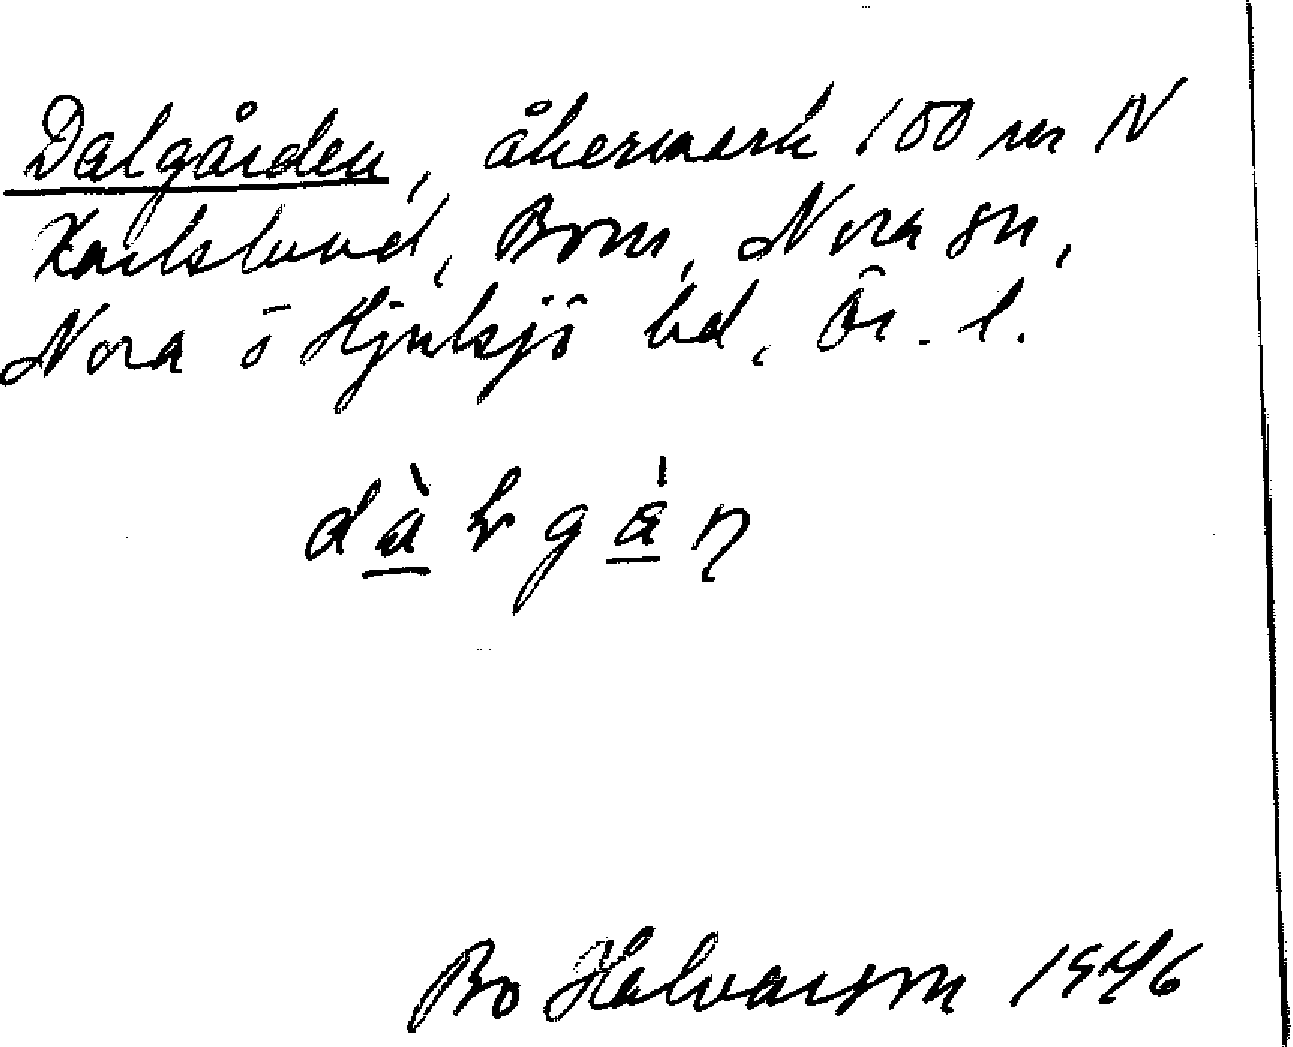 Dalgården, åkermark 100 m N
Karlslund, Bom, Nora sn,
Nora o Hjulsjö bd, Ör. l.
Bo Halvarson 1946